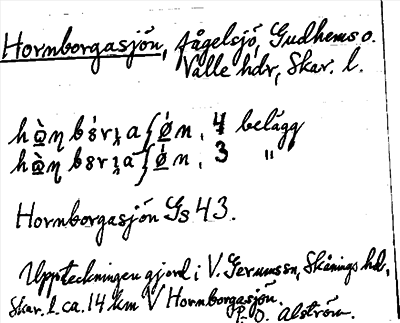 Hornborgasjön, fågelsjö, Gudhems o.
Valle hdr, Skar. l.
4 belägg
3 "
Hornborgasjön Gs 43.
Uppteckningen gjord i V. Gerumssn, Skånings hd,
Skar. l. ca. 14 km V Hornborgasjön.
P. O. Alström.